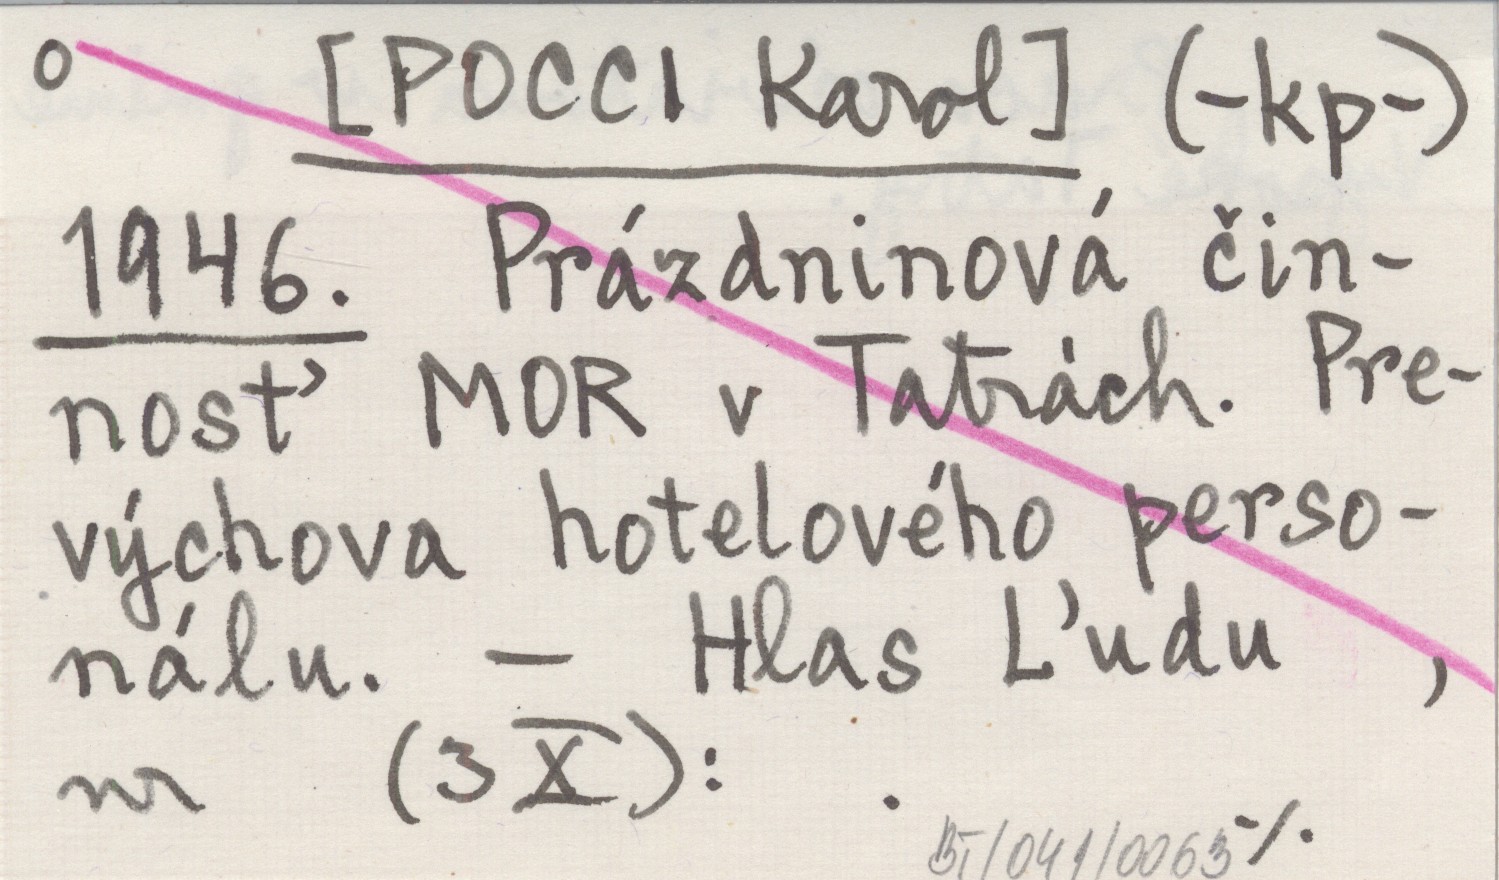 o [POCCI Karol] (-kp-)
1946. Prázdninová čin-
nosť MOR v Tatrách. Pre-
výchova hotelového perso-
nálu. — Hlas Ľudu ,
nr (3 X): .
-/.
BI/041/0063